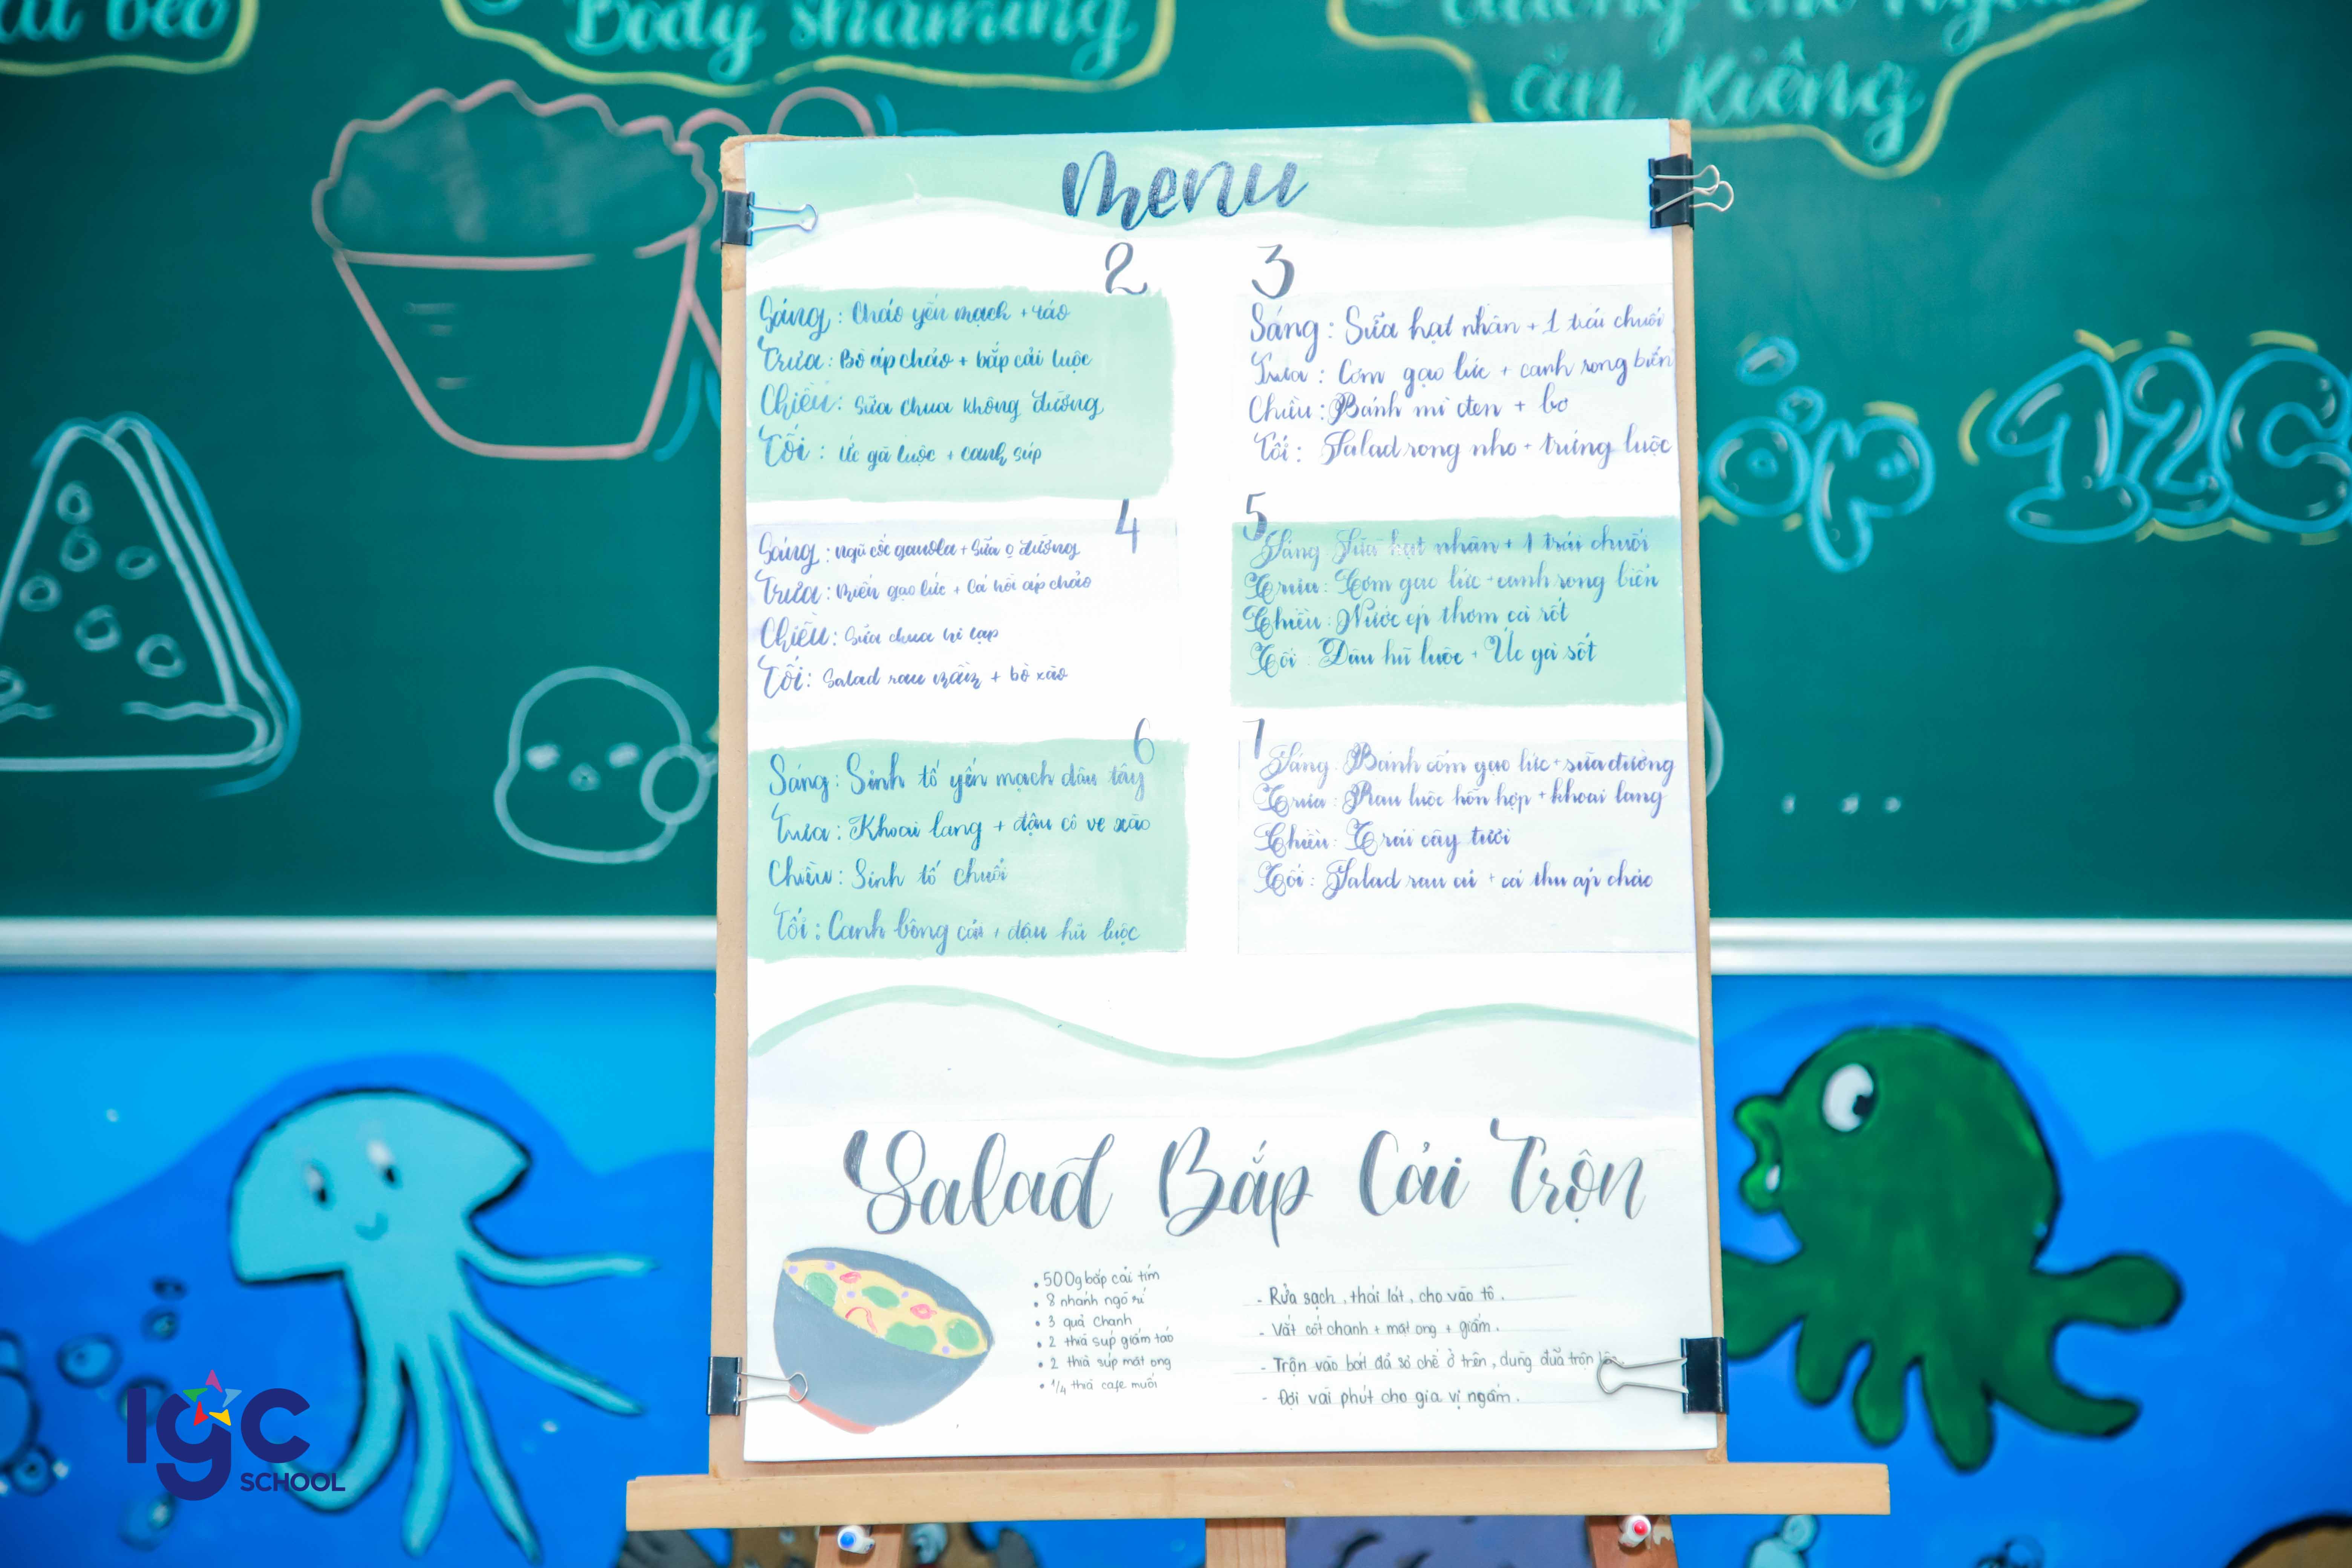 Body shaming
ăn kiêng
Menu
2
Sáng: Cháo yến mạch + táo
Trưa: Bò áp chảo + bắp cải luộc
Chiều: Sữa chua không đường
Tối: Ức gà luộc + canh súp
3
Sáng: Sữa hạt nhân + 1 trái chuối
Trưa: Cơm gạo lức + canh rong biển
Chiều: Bánh mì đen + bơ
Tối: Salad rong nho + trứng luộc
4
Sáng: ngũ cốc ganola + sữa o đường
Trưa: Miến gạo lức + Cá hồi áp chảo
Chiều: Sữa chua hi lạp
Tối: Salad rau mầm + bò xào
5
Sáng: Sữa hạt nhân + 1 trái chuối
Trưa: Cơm gạo lức + canh rong biển
Chiều: Nước ép thơm cà rốt
Tối: Đậu hũ luộc + Ức gà sốt
6
Sáng: Sinh tố yến mạch dâu tây
Trưa: Khoai lang + đậu cô ve xào
Chiều: Sinh tố chuối
Tối: Canh bông cải, đậu hũ luộc
7
Sáng: Bánh cốm gạo lức + sữa đường
Trưa: Rau luộc hỗn hợp + khoai lang
Chiều: Trái cây tươi
Tối: Salad rau củ + cá thu áp chảo
Salad Bắp Cải Trộn
• 500g bắp cải tím
• 8 nhánh ngò rí
• 3 quả chanh
• 2 thìa súp giấm táo
• 2 thìa súp mật ong
• 1/4 thìa cafe muối
- Rửa sạch, thái lát, cho vào tô.
- Vắt cốt chanh + mật ong + giấm.
- Trộn vào bát đã sơ chế ở trên, dùng đũa trộn
- Đợi vài phút cho gia vị ngấm.
12C
IGC
SCHOOL